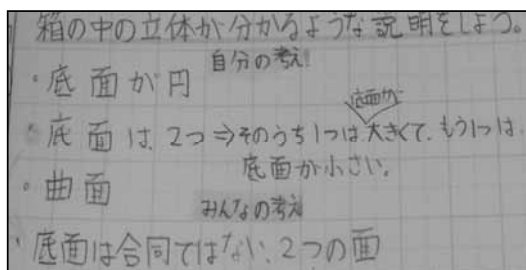 箱の中の立体が分かるような説明をしよう。
自分の考え!
・底面が円
底面が
・底面は、2つ⇒そのうち1つは大きくて、もう1つは、
底面が小さい。
・曲面
みんなの考え
・底面は合同ではない、2つの面